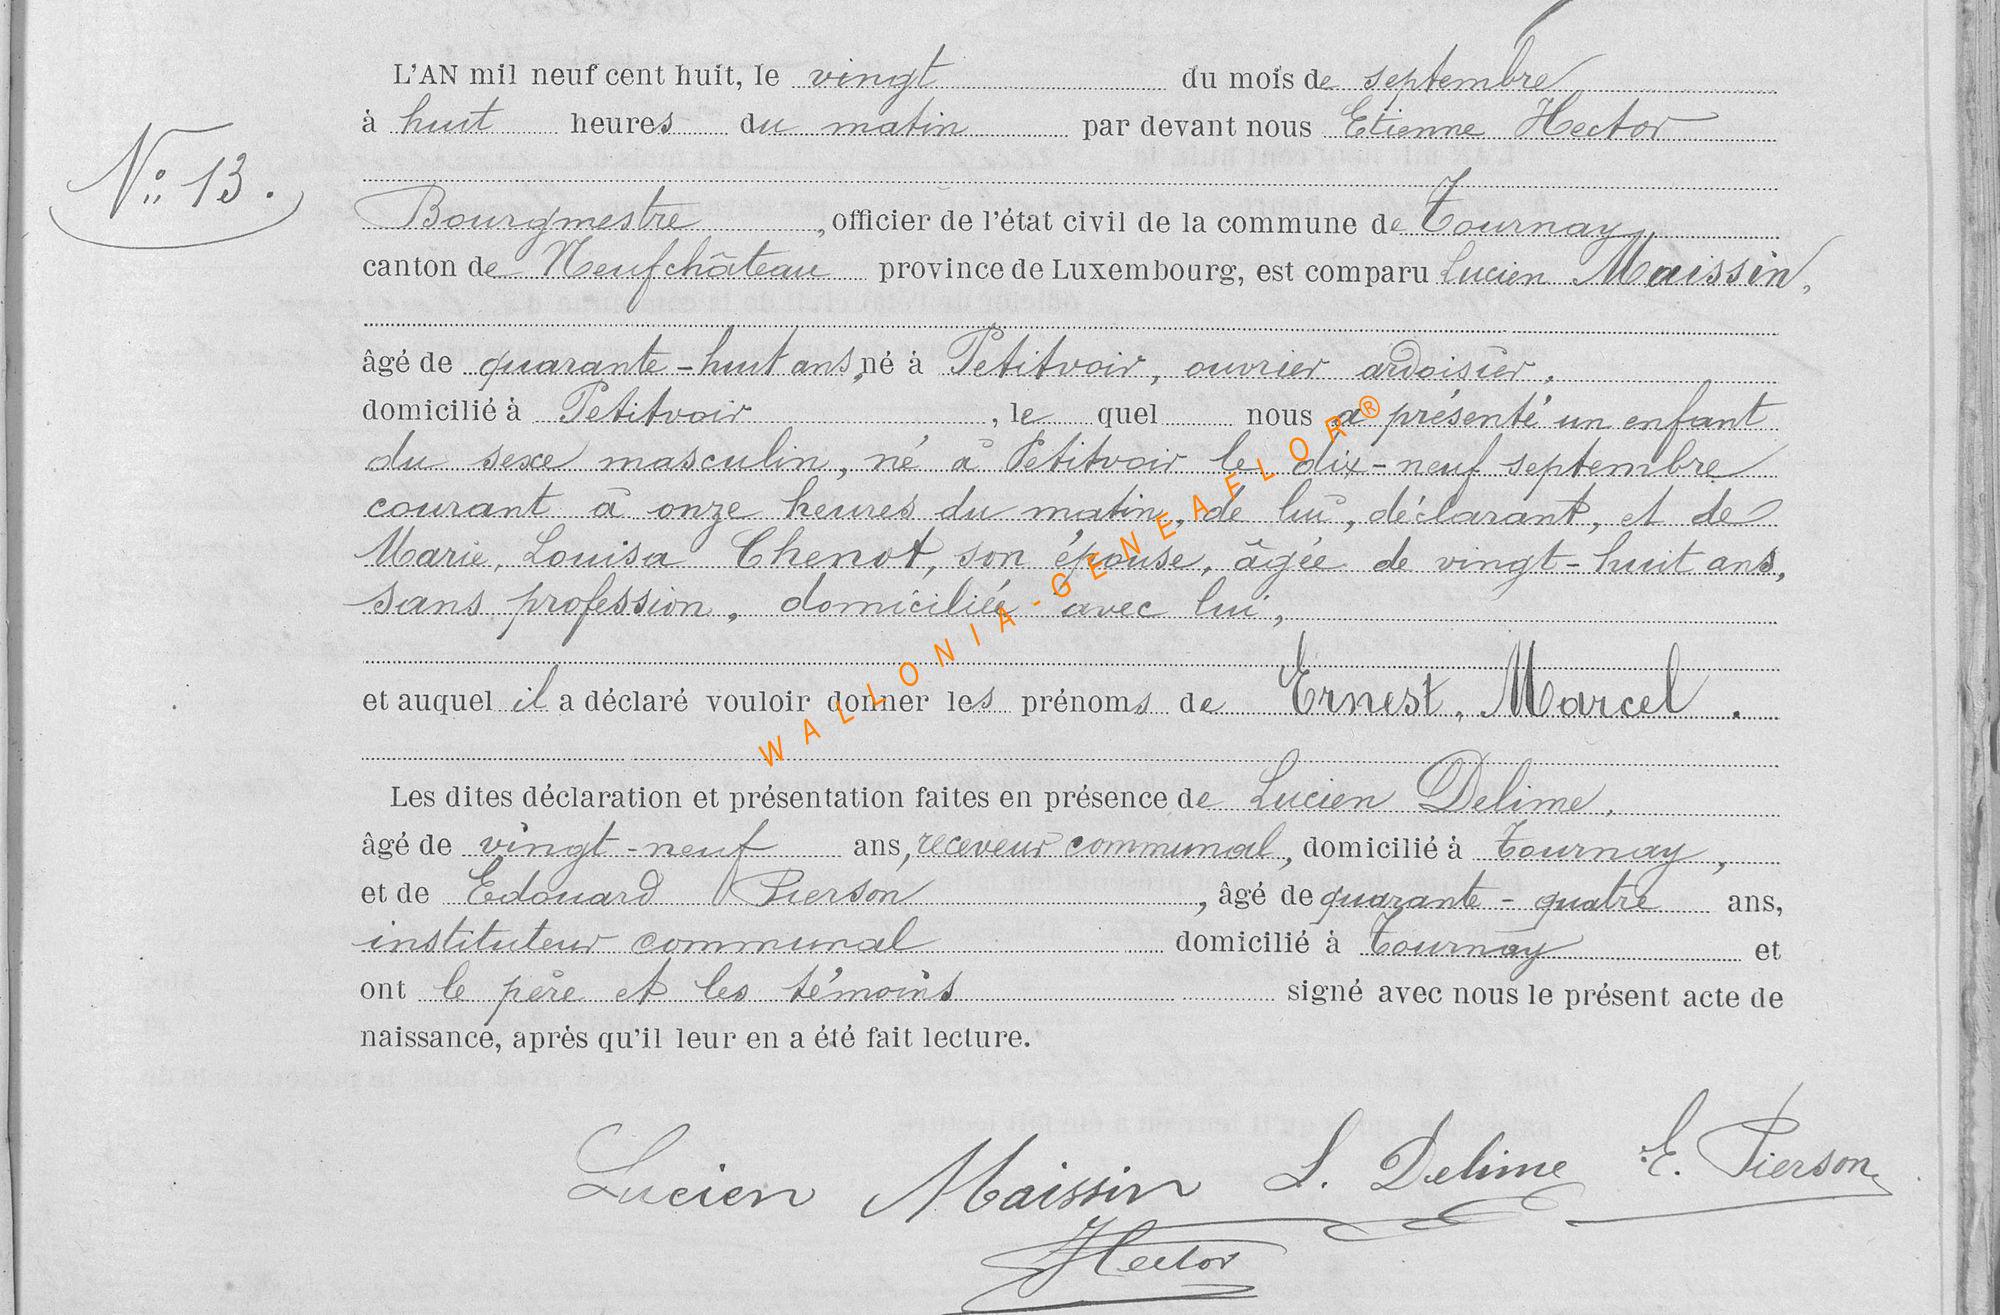 L'AN mil neuf cent huit, le vingt du mois de septembre
à huit heures du matin par devant nous Etienne Hector
N° 13.
Bourgmestre, officier de l'état civil de la commune de Tournay
canton de Neufchâteau province de Luxembourg, est comparu Lucien Maissin,
âgé de quarante-huit ans, né à Petitvoir, ouvrier ardoisier,
domicilié à Petitvoir, le quel nous a présenté un enfant
du sexe masculin, né à Petitvoir le dix-neuf septembre
courant à onze heures du matin, de lui, déclarant, et de
Marie, Louisa Chenot, son épouse, âgée de vingt-huit ans,
sans profession, domiciliée avec lui,
et auquel il a déclaré vouloir donner les prénoms de Ernest, Marcel.
Les dites déclaration et présentation faites en présence de Lucien Delime,
âgé de vingt-neuf ans, receveur communal, domicilié à Tournay,
et de Edouard Pierson, âgé de quarante-quatre ans,
instituteur communal domicilié à Tournay et
ont le père et les témoins signé avec nous le présent acte de
naissance, après qu'il leur en a été fait lecture.
Lucien Maissin L. Delime E. Pierson
Hector
WALLONIA-GENEAFLOR®